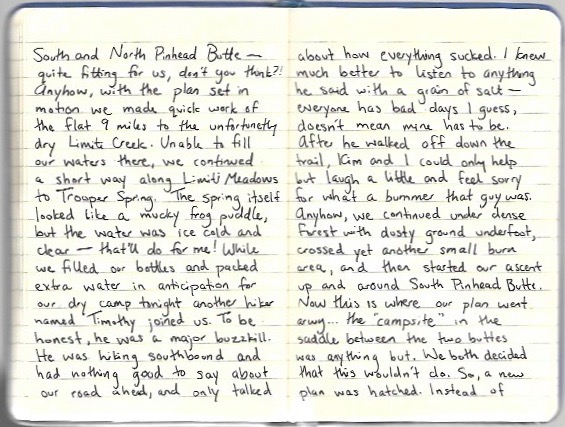 South and North Pinhead Butte —
quite fitting for us, don't you think?!
Anyhow, with the plan set in
motion we made quick work of
the flat 9 miles to the unfortunetly
dry Limiti Creek. Unable to fill
our waters there, we continued
a short way along Limiti Meadows
to Trooper Spring. The spring itself
looked like a mucky frog puddle,
but the water was ice cold and
clear — that'll do for me! While
we filled our bottles and packed
extra water in anticipation for
our dry camp tonight another hiker
named Timothy joined us. To be
honest, he was a major buzzkill.
He was hiking southbound and
had nothing good to say about
our road ahead, and only talked
about how everything sucked. I knew
much better to listen to anything
he said with a grain of salt —
everyone has bad days I guess,
doesn't mean mine has to be.
After he walked off down the
trail, Kim and I could only help
but laugh a little and feel sorry
for what a bummer that guy was.
Anyhow, we continued under dense
forest with dusty ground underfoot,
crossed yet another small burn
area, and then started our ascent
up and around South Pinhead Butte.
Now this is where our plan went
awry... the "campsite" in the
saddle between the two buttes
was anything but. We both decided
that this wouldn't do. So, a new
plan was hatched. Instead of